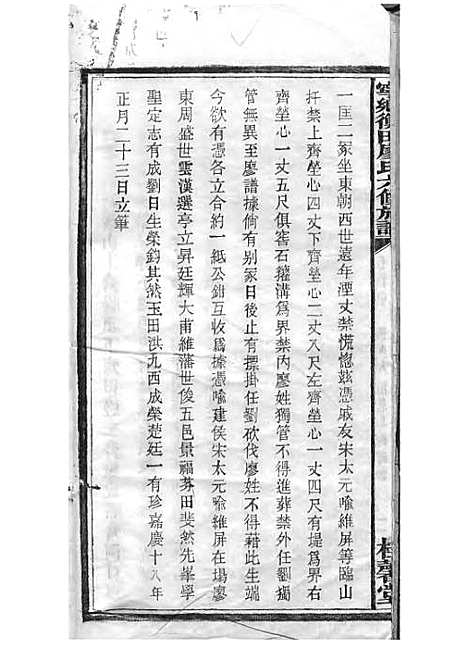 一匡二冢坐東朝西世遠年湮丈禁慌惚茲憑戚友宋太元喻維屏等臨山
扦禁上齊塋心四丈下齊塋心二丈八尺左齊塋心一丈四尺有堤爲界右
齊塋心一丈五尺俱窖石籠溝爲界禁内廖姓獨管不得進葬禁外任劉獨
管無異至廖譜據倘有别冢日後止有摽掛任劉砍伐廖姓不得藉此生端
今欲有憑各立合約一紙公鉗互收爲據憑喻建侯宋太元喻維屏在場廖
東周盛世雲漢選亭立昇廷輝大甫維藩世俊五邑景福芬田斐然先峯學
聖定志有成劉日生榮鈞其然玉田洪九西成榮楚廷一有珍嘉慶十八年
正月二十三日立筆
寧鄉衡田廖氏六修族譜